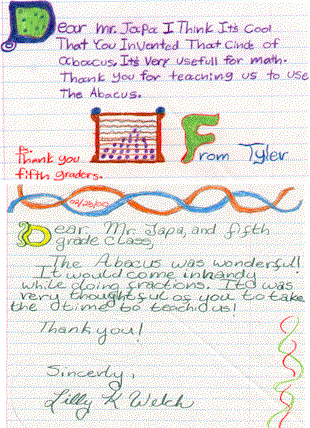 Dear Mr. Japa I Think Its Cool
That You Invented That Cinds of
abacus. Its Very usefull for math.
Thank you for teaching us to use
The Abacus.
From Tyler
Ps.
Thank you
fifth graders.
02/25/00
Dear, Mr. Japa, and fifth
grade class,
The Abacus was wonderful!
It would come in handy
while doing fractions. It was
very thoughtful of you to take
the time to teach us!
Thank you!
Sincerly,
Lilly K Welch